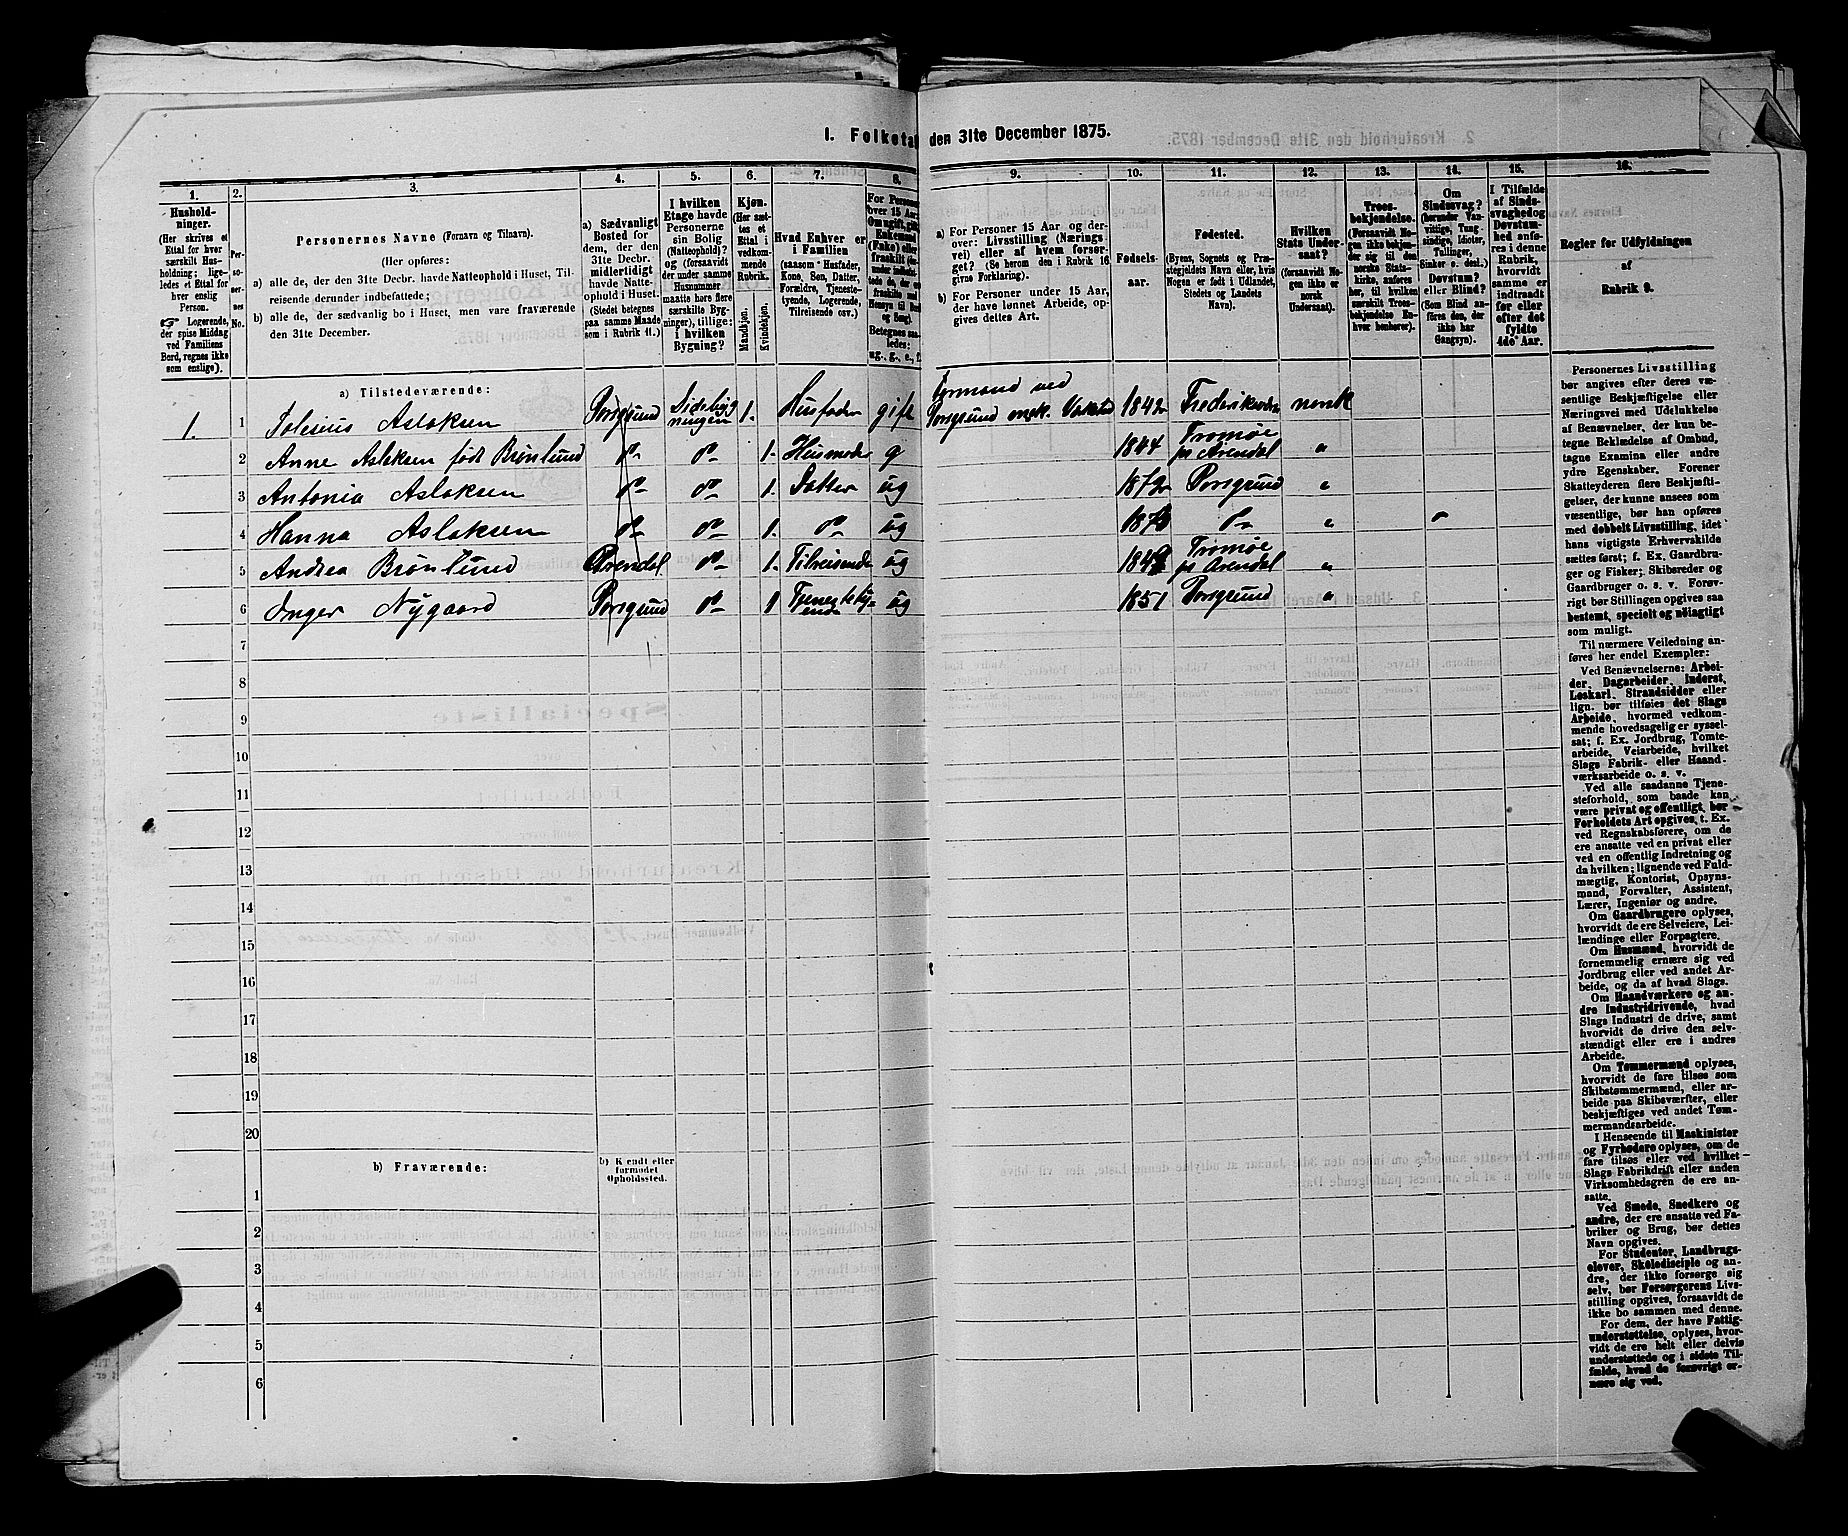 1. Folketal den 31te December 1875.
1.
2.
3.
4.
5.
6.
7.
8.
9.
10.
11.
12.
13.
14.
15.
16.
Hushold-
ninger.
(Her skrives et
Ettal for hver
særskilt Hus-
holdning; lige-
ledes et Ettal for
hver enslig
Person.
☞ Logerende,
der spise Middag
ved Familiens
Bord, regnes ikke
som enslige).
Per-
so-
ner-
nes
No.
Personernes Navne (Fornavn og Tilnavn).
(Her opføres:
a) alle de, der den 31te Decbr. havde Natteophold i Huset, Til-
reisende derunder indbefattede;
b) alle de, der sædvanlig bo i Huset, men vare fraværende
den 31te December.
a) Sædvanligt
Bosted for
dem, der den
31te Decbr.
midlertidigt
havde Natte-
ophold i Huset.
(Stedet betegnes
paa samme Maade
som i Rubrik 11.)
I hvilken
Etage havde
Personerne
sin Bolig
(Natteophold)?
og (forsaavidt
der under samme
Husnummer
maatte høre flere
særskilte Byg-
ninger), tillige:
i hvilken
Bygning?
Kjøn.
(Her sæt-
tes et
Ettal i
vedkom-
mende
Rubrik.
Mandkjøn.
Kvindekjøn.
Hvad Enhver er
i Familien
(saasom Husfader,
Kone, Søn, Datter,
Forældre, Tjeneste-
tyende, Logerende,
Tilreisende osv.)
For Personer
over 15 Aar:
Om ugift, gift,
Enkemand
(Enke) eller
fraskilt
Betegnes saa-
ledes:
ug., g., e., f.
a) For Personer 15 Aar og der-
over: Livsstilling (Nærings-
vei) eller af hvem forsør-
get? (Se herom den i Rubrik 16
givne Forklaring).
b) For Personer under 15 Aar,
der have lønnet Arbeide, op-
gives dettes Art.
Fødsels-
aar.
Fødested.
(Byens, Sognets og Præ-
stegjeldets Navn eller, hvis
Nogen er født i Udlandet,
Stedets og Landets
Navn).
Hvilken
Stats Under-
saat?
(forsaavidt No-
gen ikke er
norsk
Undersaat).
Troes-
bekjendelse.
(Forsaavidt No-
gen ikke beken-
der sig til den
norske Stats-
kirke, anføres
her, til hvilken
særskilt Troes-
bekjendelse En-
hver henhører).
Om
Sindssvag?
(herunder Van-
vittige, Tung-
sindige, Idioter,
Tullinger,
Sinker o. desl.)
Døvstum?
eller Blind?
(Som Blind an-
føres den, der
ikke har
Gangsyn).
I Tilfælde
af Sinds-
svaghed og
Døvstum-
hed anfø-
res i denne
Rubrik,
hvorvidt
samme er
indtraadt
før eller
efter det
fyldte
4de Aar.
Regler for Udfyldningen
af
Rubrik 9.
a) Tilstedeværende:
1. 1 Tolesius Aslaksen Porsgrund Sidebyg-
ningen 1. Husfader gift Formand ved
Porsgrund 1842 Frederiksværn norsk
2 Anne Aslaksen født Brønlund do do 1. Husmoder g 1844 Tromøe
ps Arendal "
3 Antonia Aslaksen do do 1. Datter ug 1872 Porsgrund "
4 Hanna Aslaksen do do 1. do ug do "
5 Andrea Brønlund Arendal do 1. Tilreisende ug Tromøe
ps Arendal "
6 Inger Nygaard Porsgrund do 1 Tjenesty-
ende ug 1851 Porsgrund "
7
8
9
10
11
12
13
14
15
16
17
18
19
20
b) Fraværende:
b) Kjendt eller
formodet
Opholdssted.
1
2
3
4
5
6
Personernes Livsstilling
bør angives efter deres væ-
sentlige Beskjæftigelse eller
Næringsvei med Udelukkelse
af Benævnelser, der kun be-
tegne Beklædelse af Ombud,
tagne Examina eller andre
ydre Egenskaber. Forener
Skatteyderen flere Beskjæfti-
gelser, der kunne ansees som
væsentlige, bør han opføres
med dobbelt Livsstilling, idet
hans vigtigste Erhvervskilde
sættes først; f. Ex. Gaardbru-
ger og Fisker; Skibsreder og
Gaardbruger o. s. v. Forøv-
rigt bør Stillingen opgives saa
bestemt, specielt og nøiagtigt
som muligt.
Til nærmere Veiledning an-
føres her endel Exempler:
Ved Benævnelserne: Arbei-
der, Dagarbeider, Inderst,
Løskarl, Strandsidder eller
lign. bør tilføies det Slags
Arbeide, hvormed vedkom-
mende hovedsagelig er syssel-
sat; f. Ex. Jordbrug, Tomte-
arbeide, Veiarbeide, hvilket
Slags Fabrik- eller Haand-
værksarbeide o. s. v.
Ved alle saadanne Tjene-
steforhold, som baade kan
være privat og offentligt, bør
Forholdets Art opgives, t. Ex.
ved Regnskabsførere, om de
ere ansatte ved en privat eller
ved en offentlig Indretning og
da hvilken; lignende ved Fuld-
mægtig, Kontorist, Opsyns-
mand, Forvalter, Assistent,
Lærer, Ingeniør og andre.
Om Gaardbrugere oplyses,
hvorvidt de ere Selveiere, Lei-
lændinge eller Forpagtere.
Om Husmænd, hvorvidt de
fornemmelig ernære sig ved
Jordbrug eller ved andet Ar-
beide, og da af hvad Slags.
Om Haandværkere og an-
dre Industridrivende, hvad
Slags Industri de drive, samt
hvorvidt de drive den selv-
stændigt eller ere i andres
Arbeide.
Om Tømmermænd oplyses,
hvorvidt de fare tilsøs som
Skibstømmermænd, eller ar-
beide paa Skibsværfter, eller
beskjæftiges ved andet Tøm-
mermandsarbeide.
I Henseende til Maskinister
og Fyrbødere oplyses, om de
fare tilsøs eller ved hvilket
Slags Fabrikdrift eller anden
Virksomhedsgren de ere an-
satte.
Ved Smede, Snedkere og
andre, der ere ansatte ved Fa-
briker og Brug, bør dettes
Navn opgives.
For Studenter, Landbrugs-
elever, Skoledisciple og an-
dre, der ikke forsørge sig
selv, bør Forsørgerens Livs-
stilling opgives, forsaavidt de
ikke bo sammen med denne.
For dem, der have Fattig-
understøttelse, oplyses, hvor-
vidt de ere helt eller delvis
understøttede og i sidste Til-
fælde, hvad de forøvrigt er-
nære sig ved.